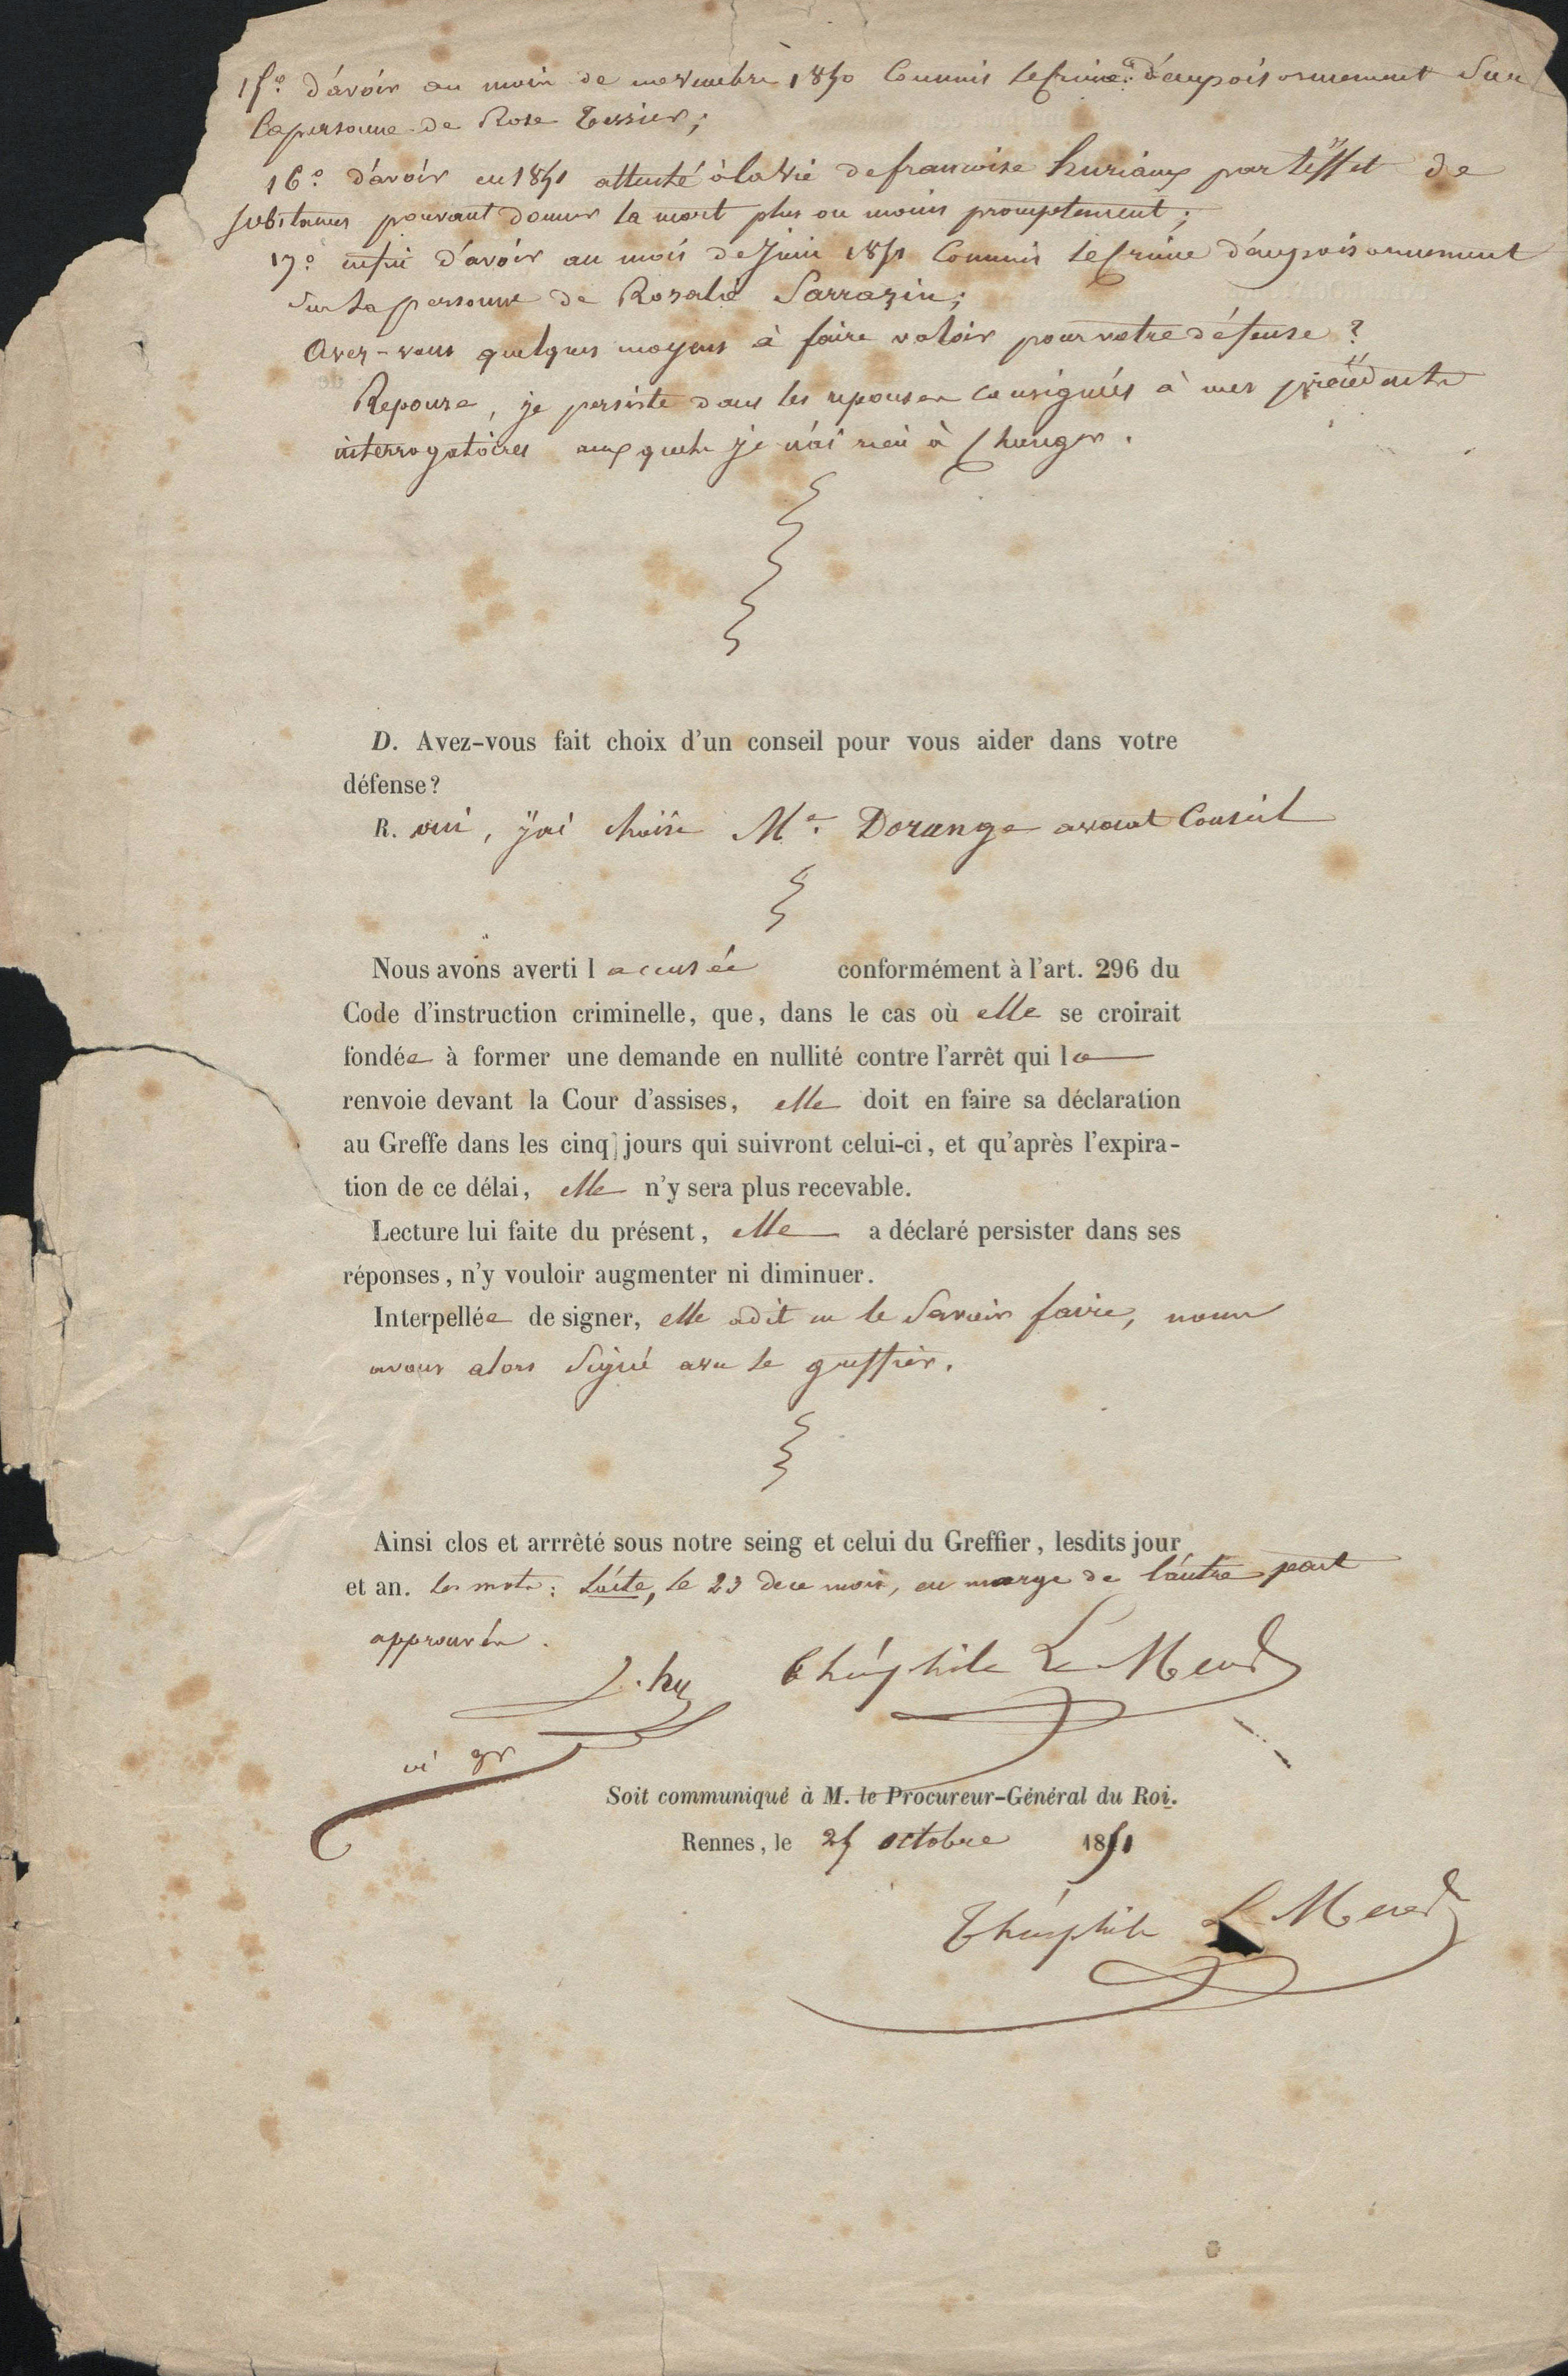 15º d'avoir au mois de novembre 1850 Commis le crime d'empoisonnement Sur
la personne de Rose Tessier;
16º d'avoir en 1851 attenté à la vie de francoise huriaux par l'effet de
substances pouvant donner la mort plus ou moins promptement;
17º enfin d'avoir au mois de Juin 1851 Commis le Crime d'empoisonnement
Sur la personne de Rosalie Sarrazin;
Avez-vous quelques moyens à faire valoir pour votre défense?
Reponse, je persiste dans les reponses consignées à mes précédents
interrogatoires auxquels je n'ai rien à Changer.
D. Avez-vous fait choix d'un conseil pour vous aider dans votre
défense?
R. oui, j'ai choisi Me. Dorange avocat Conseil
Nous avons averti l accusée conformément à l'art. 296 du
Code d'instruction criminelle, que, dans le cas où elle se croirait
fondée à former une demande en nullité contre l'arrêt qui la
renvoie devant la Cour d'assises, elle doit en faire sa déclaration
au Greffe dans les cinq jours qui suivront celui-ci, et qu'après l'expira-
tion de ce délai, elle n'y sera plus recevable.
Lecture lui faite du présent, elle a déclaré persister dans ses
réponses, n'y vouloir augmenter ni diminuer.
Interpellée de signer, elle a dit ne le Savoir faire, nous
avons alors Signé avec le greffier.
Ainsi clos et arrrêté sous notre seing et celui du Greffier, lesdits jour
et an. les mots: le 23 de ce mois, en marge de l'autre part
approuvés.
Théophile Le Meur
Soit communiqué à M. le Procureur-Général du Roi.
Rennes, le 25 octobre 1851
Théophile Le Meur